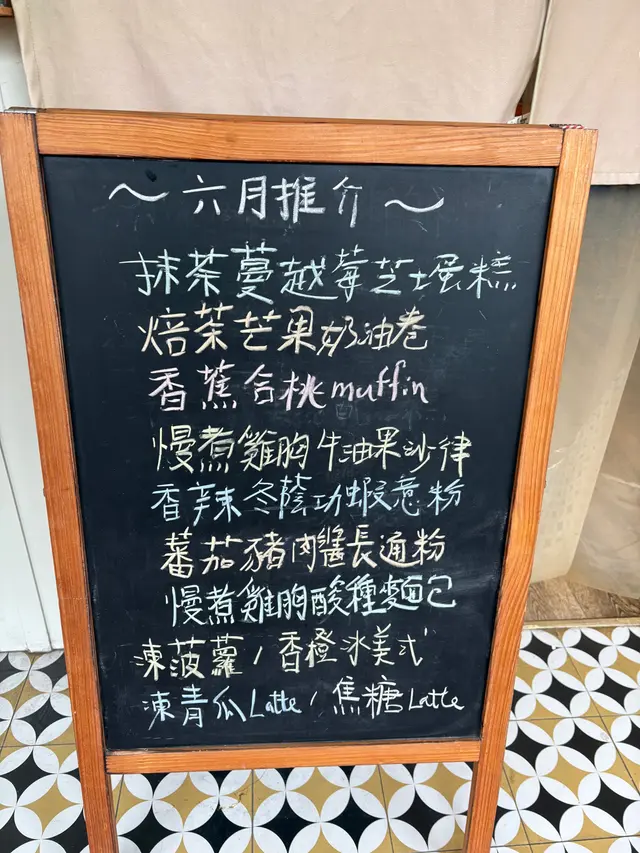 ～六月推介～
抹茶蔓越莓芝士蛋糕
焙茶芒果奶油卷
香蕉合桃muffin
慢煮雞胸牛油果沙律
香辣冬蔭功蝦意粉
蕃茄豬肉醬長通粉
慢煮雞胸酸種麵包
凍菠蘿/香橙冰美式
凍青瓜Latte/焦糖Latte